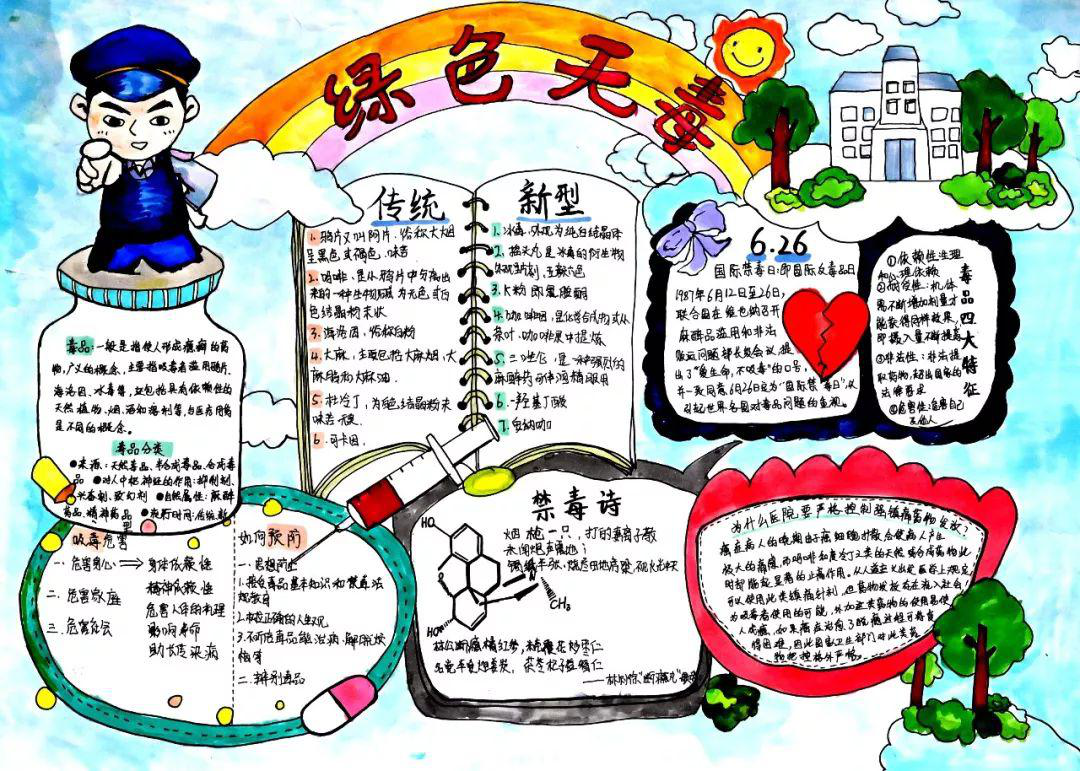 绿色无毒
传统
1.鸦片又叫阿片.俗称大烟
呈黑色或褐色.味苦
2.吗啡.是从鸦片中分离出
来的一种生物碱为无色或白
色结晶粉末状
3.海洛因.俗称白粉
4.大麻.主要包括大麻烟.大
麻脂和大麻油.
5.杜冷丁,为白色结晶粉末
味苦
6.可卡因.
新型
1.冰毒.外观为纯白结晶体
2.摇头丸是冰毒的衍生物
3.K粉即氯胺酮
4.咖啡因,是化学合成或从
茶叶.咖啡果中提炼
5.三唑仑.是一种强烈的
麻醉药可伴酒精服用
6.羟基丁酸
7.安纳咖
6.26
国际禁毒日:即国际反毒品日
1987年6月12日至26日,
联合国在维也纳召开
麻醉品滥用和非法
贩运问题部长级会议,提
出了"爱生命,不吸毒"的口号,
并一致同意6月26日定为"国际禁毒日",以
引起世界各国对毒品问题的重视.
毒品四大特征
①依赖性生理
和心理依赖
②耐受性:机体
需不断增加剂量才
能获得同样效果,
即摄入量不断提高
③非法性:非法提
取药物,超出国家的
法律要求
④危害性:危害自己
及他人
毒品:一般是指使人形成瘾癖的药
物,广义的概念,主要指吸毒者滥用鸦片、
海洛因、冰毒等,还包括具有依赖性的
天然植物、烟、酒和溶剂等,与医疗用药
是不同的概念。
毒品分类
●来源:天然毒品、半合成毒品、合成毒
品 ●对人中枢神经的作用:抑制剂、
兴奋剂、致幻剂 ●自然属性:麻醉
药品、精神药品 ●流行时间:传统、新
型
吸毒危害
一.危害身心⇒身体依赖性
精神依赖性
危害人体的机理
二.危害家庭
三.危害社会
影响寿命
助长传染病
如何预防
一.思想防止
1.接受毒品基本知识和禁毒法
规教育
2.树立正确的人生观
3.不听信毒品能治病.解脱烦
恼等
二.辨别毒品
禁毒诗
烟枪一只,打的妻离子散
未闻炮声震地;
锡纸半张,烧尽田地房梁,
HO
HO
CH₃
——林则徐"
为什么医院要严格控制强镇痛药物发放:
癌症病人的晚期由于癌细胞扩散会使病人产生
极大的痛感,而吗啡和度冷丁之类的天然或合成药物此
时都能起显著的止痛作用。从人道主义出发医院上规定
可以使用此类镇痛针剂,但药物发放存在流入社会
为吸毒者使用的可能,外加这类药物的使用易使
人成瘾,如果癌症治愈了脱瘾过程可将变
得困难,因此国家卫生部门对此类药
物把控格外严格。